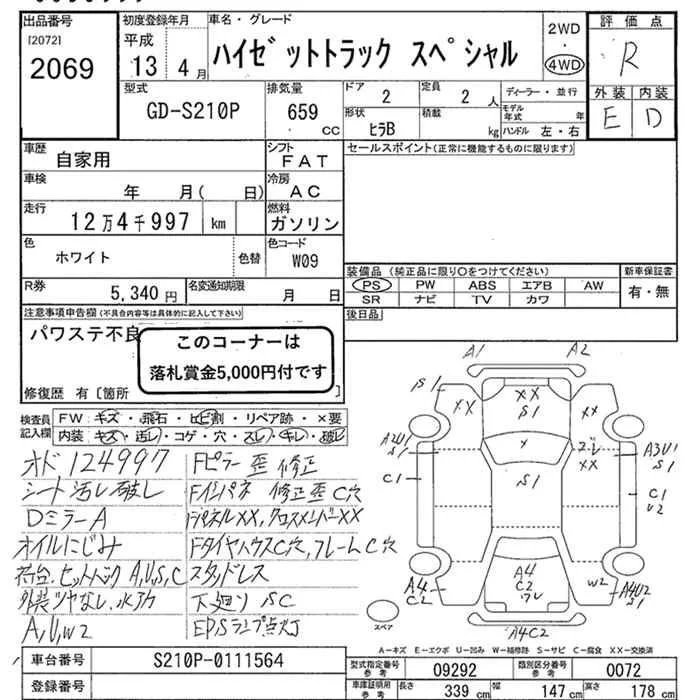 出品番号
[2072]
2069
初度登録年月
平成
13 4月
車名・グレード
ハイゼットトラック スペシャル
2WD
・
4WD
評価点
R
外装 内装
E D
型式
GD-S210P
排気量
659 CC
ドア
2
定員
2 人
形状
ヒラB
積載
kg
ディーラー・並行
モデル年式 年
ハンドル 左・右
車歴
自家用
シフト
FAT
車検
年 月( 日)
冷房
AC
走行
12万4千997 km
燃料
ガソリン
色
ホワイト
色替
色コード
W09
R券
5,340円
名変通知期限
月 日
セールスポイント(正常に機能するものに限ります)
装備品 (純正品に限り○をつけてください)
PS PW ABS エアB AW
SR ナビ TV カワ
新車保証書
有・無
後日品
注意事項申告欄(不具合内容等は具体的に記入して下さい)
パワステ不良
このコーナーは
落札賞金5,000円付です
修復歴 有〔箇所
検査員記入欄
FW ・ キズ ・ 飛石 ・ ヒビ割 ・ リペア跡 ・ ×要
内装 ・ キズ ・ 汚レ ・ コゲ ・ 穴 ・ スレ ・ キレ ・ 破レ
オド 124997
シート汚レ破レ
DミラーA
オイルにじみ
荷台.セットバック A,U,S,C
外装ツヤなし.水アカ
A,U,W2
Fピラー歪 修正
Fインパネ 修正歪 C穴
FパネルXX,クロスメンバーXX
FタイヤハウスC穴,フレームC穴
スタッドレス
下廻り SC
EPSランプ点灯
A1 A2
S1 XX XX S1 XX
A2U1 S1
C1
×
S1
XX
A3U1 S1
C1
U2
A4 C2
A4
C2
W2
A4U2 S1
A4C2
スペア
A－キズ E－エクボ U－凹み W－補修跡 S－サビ C－腐食 XX－交換済
車台番号
S210P-0111564
登録番号
型式指定番号 参考
09292
類別区分番号 参考
0072
車庫証明用 参考
長さ 339 cm
幅 147 cm
高さ 178 cm